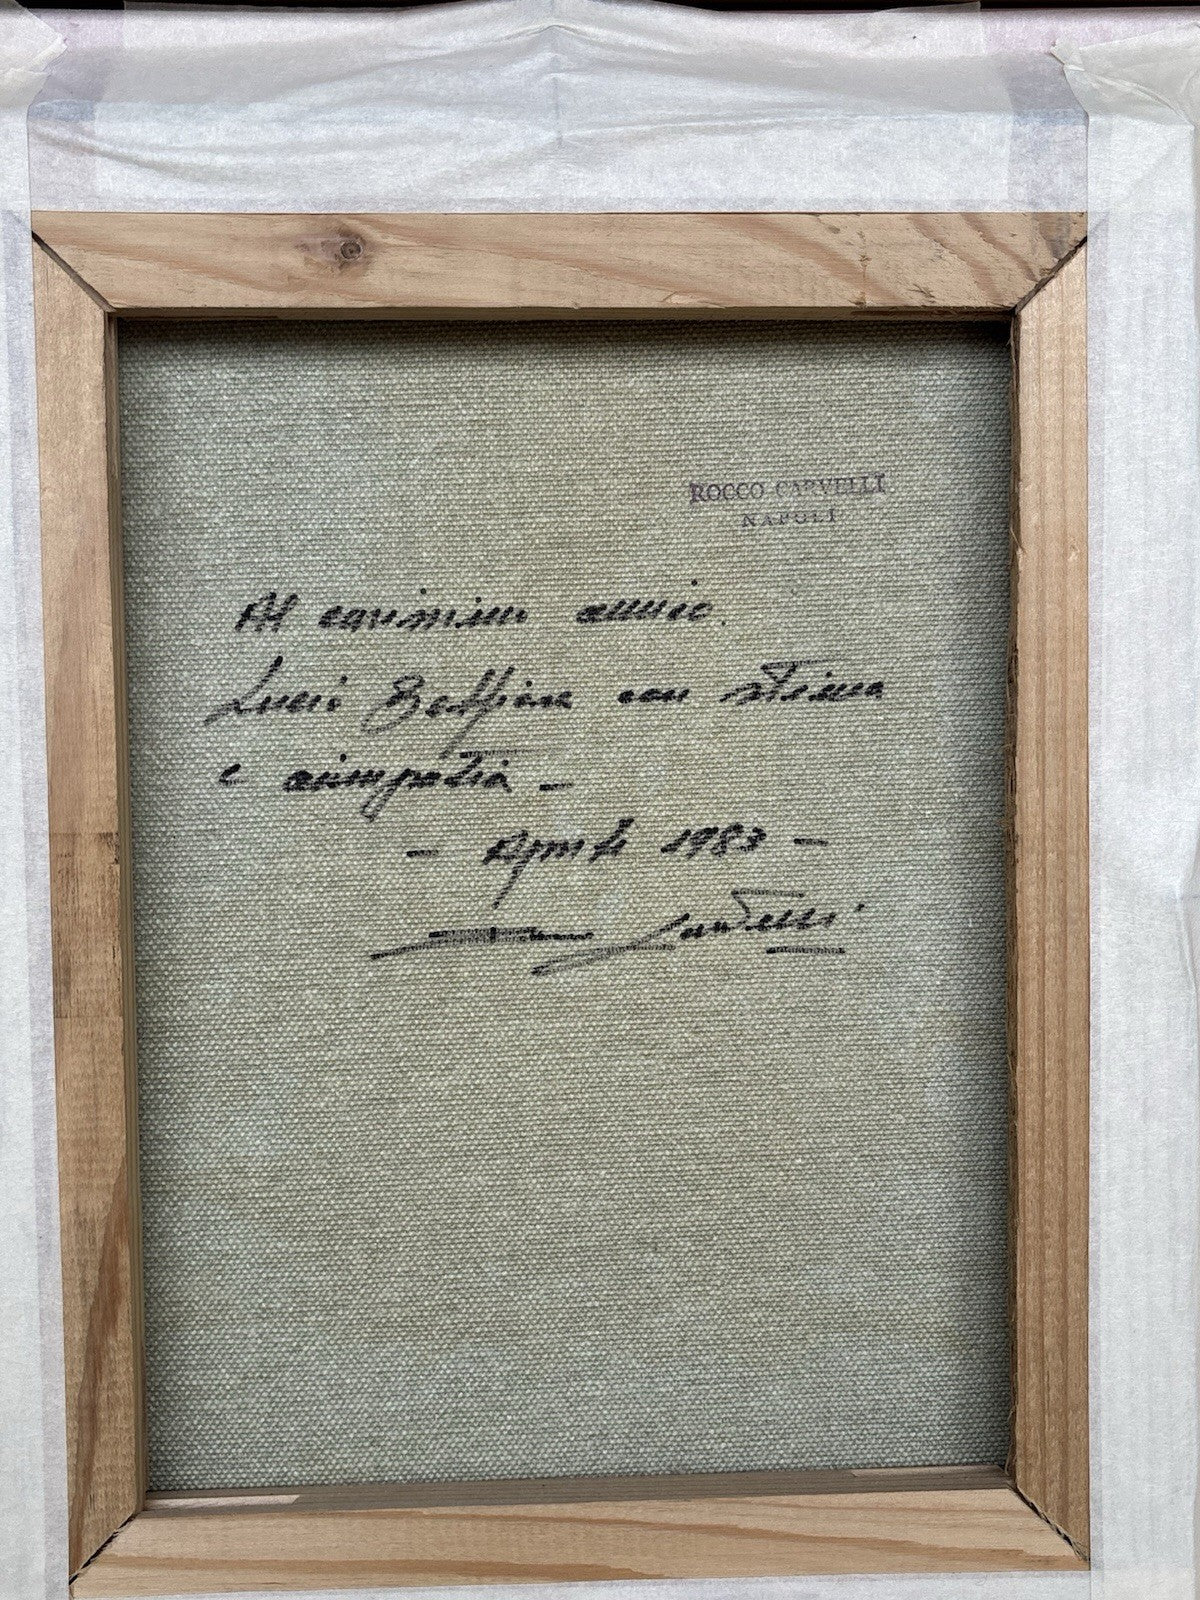 ROCCO CARVELLI
NAPOLI
Al carissimo amico
Lucio con stima
e simpatia -
- Aprile 1983 -